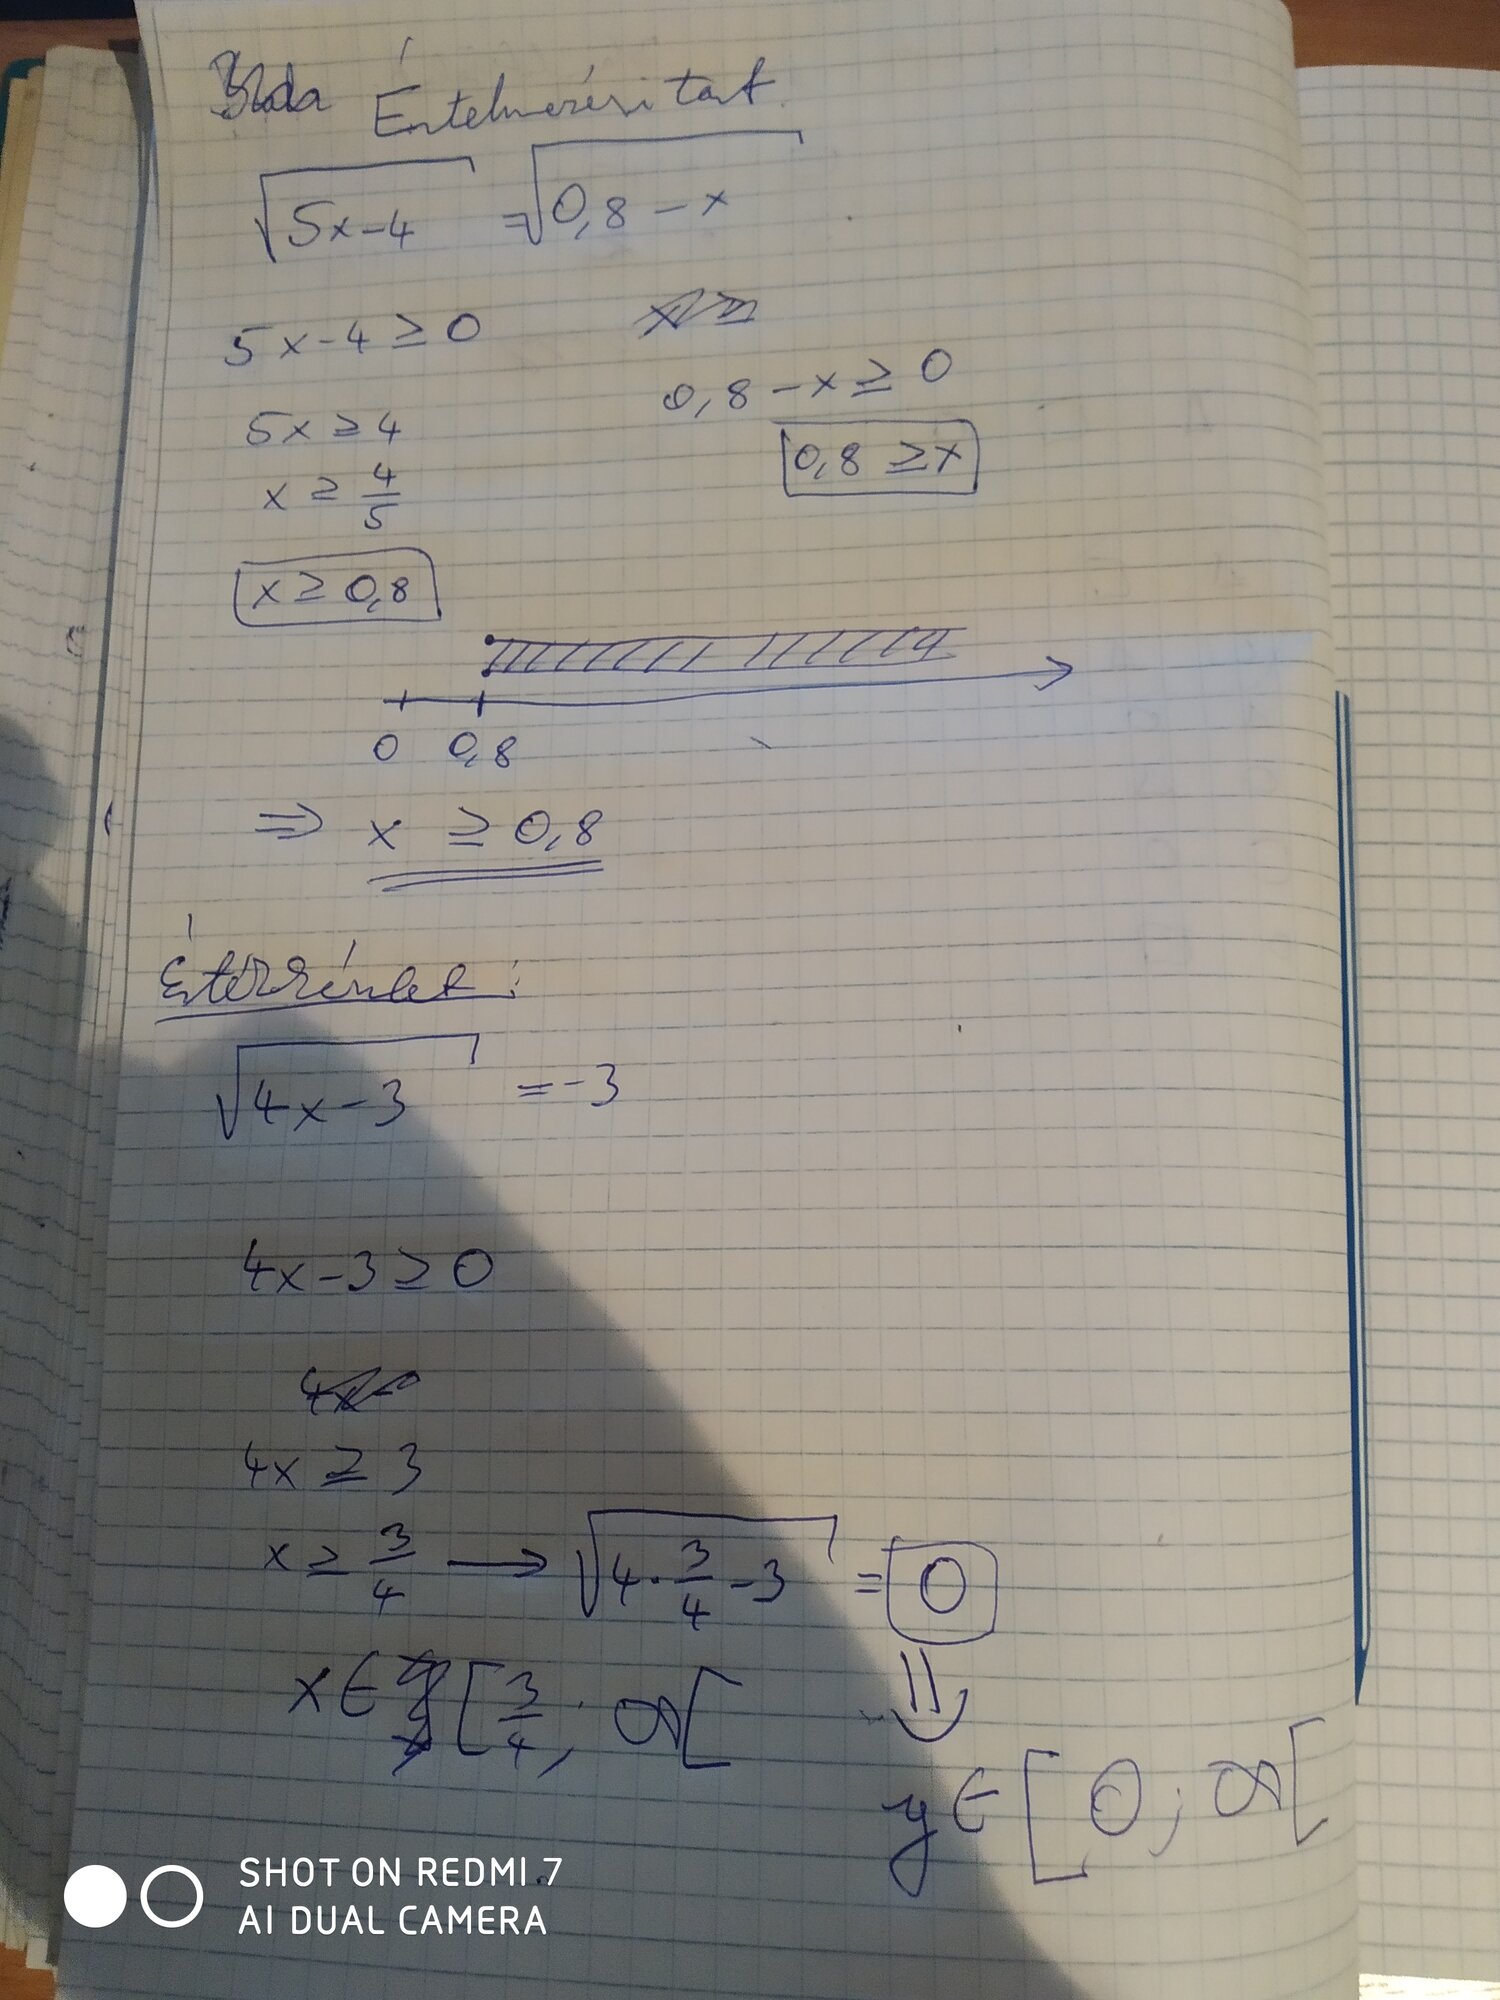 Értelmezési tart.
√5x-4 = √0,8-x
5x-4 ≥ 0
0,8-x ≥ 0
5x ≥ 4
0,8 ≥ x
x ≥ 4/5
x ≥ 0,8
0 0,8
⇒ x ≥ 0,8
Értékkészlet:
√4x-3 = -3
4x-3 ≥ 0
4x ≥ 3
x ≥ 3/4 → √4·3/4-3 = 0
x ∈ [3/4; ∞[
y ∈ [0; ∞[
SHOT ON REDMI 7
AI DUAL CAMERA